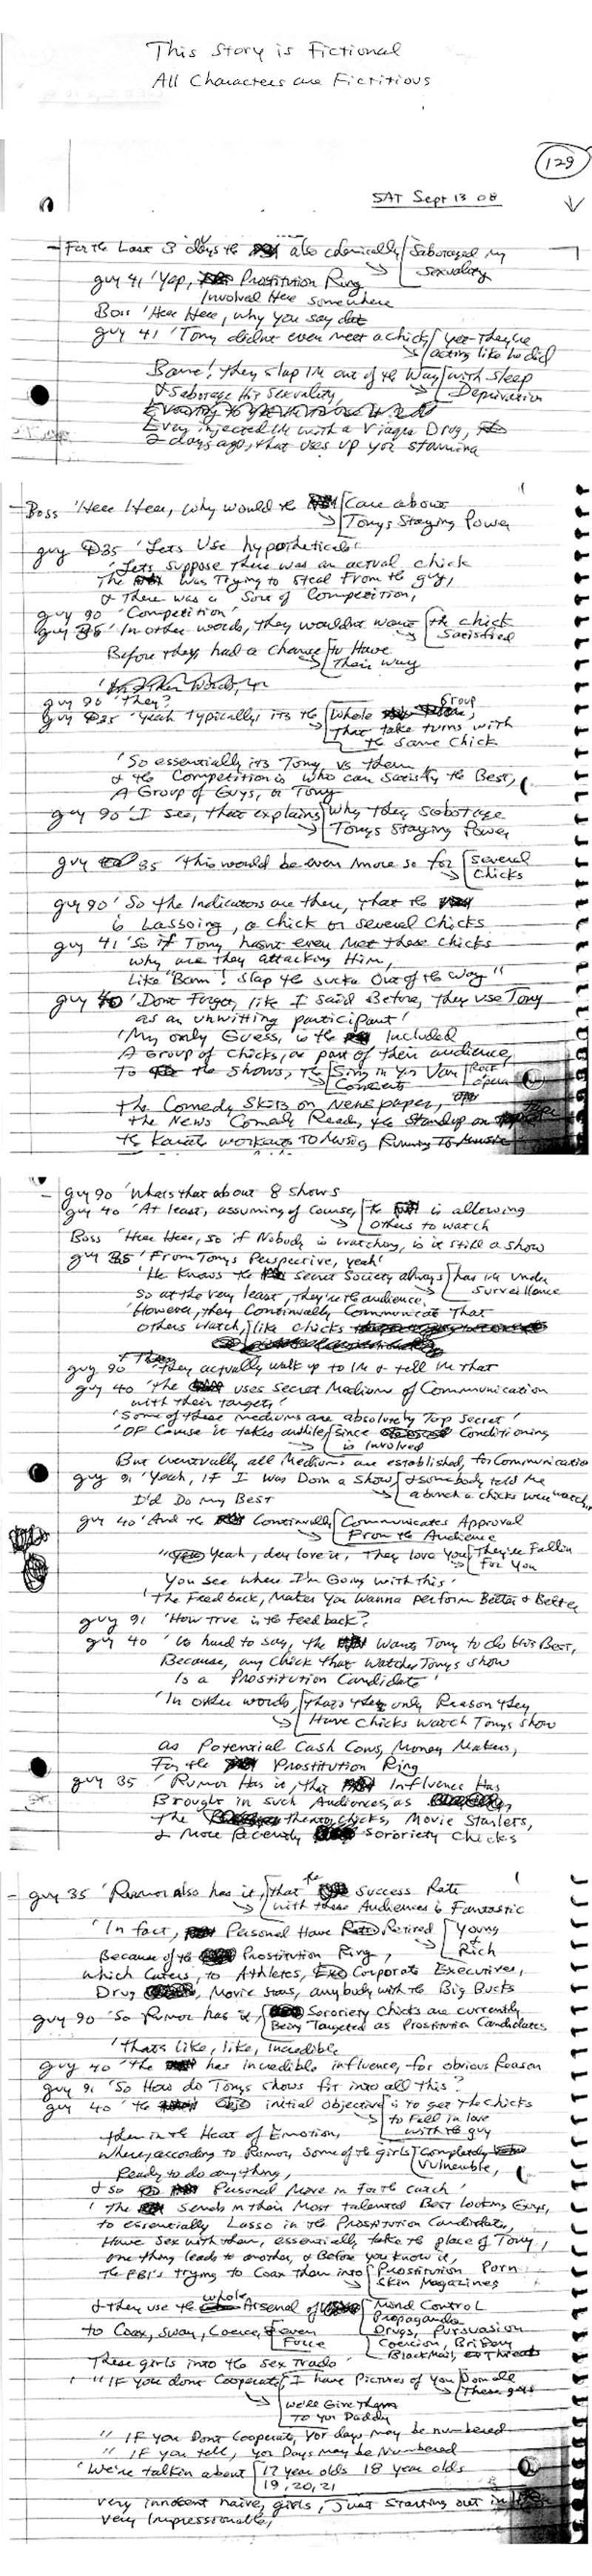 This Story is Fictional
All Characters are Fictitious
129
SAT Sept 13 08
- For the Last 3 days the also chemically Sabotaged my
Sexuality
guy 41 'Yep, Prostitution Ring
Involved Here Somewhere
Boss 'Hear Hear, why you say dat
guy 41 'Tony didnt even meet a chick, yet They're
acting like he did
Bame! they slap I'm out of the Way with sleep
Deprivation
& Sabotage His Sexuality,
Even injected I'm with a Viagra Drug,
2 days ago, that uses up yor stamina
- Boss 'Hear Hear, why would the Care about
Tonys Staying Power
guy 35 'Lets Use hypotheticals'
'Lets suppose There was an actual chick
The was Trying to Steal From the guy,
& There was a Sort of Competition,
guy 90 'Competition'
guy 35 'In other words, they wouldnt want the chick
Satisfied
Before they had a chance to Have
Their way
guy 90 'They?
guy 35 'Yeah typically, its the Whole Group
That take turns with
the same Chick
'So essentially its Tony vs them
& the Competition is who can Satisfy the Best,
A Group of Guys, or Tony
guy 90 'I see, that explains why they Sabotage
Tonys Staying Power
guy 35 'This would be even more so for Several
Chicks
guy 90 'So the Indicators are there, that the
is Lassoing, a chick or several Chicks
guy 41 'So if Tony hasnt even Met these chicks
why are they attacking Him,
Like "Bam! slap the sucka Out of the Way"
guy 40 'Dont Forget, like I said Before, they use Tony
as an unwitting participant'
'My only Guess, is the Included
A Group of Chicks, as part of their audience,
To the Shows, the Sing in yor Van Rock
Concerts opera
the Comedy Skits on Newspaper,
the News Comedy Read, the Standup on Tape
the Karate workouts TO Music Running To Music
- guy 90 'Whats that about 8 shows
guy 40 'At least, assuming of Course, the is allowing
others to watch
Boss 'Hear Hear, so if Nobody is watching, is it still a show
guy 35 'From Tonys Perspective, yeah'
'He Knows the secret Society always has I'm under
Surveillance
so at the very least, They're the audience,
'However, they Continually Communicate That
others Watch, like chicks
guy 90 'They actually walk up to I'm & tell I'm that
guy 40 'The uses secret Mediums of Communication
with their targets'
'Some of these mediums are absolutely Top secret'
'OF Course it takes awhile, since Conditioning
is Involved
But eventually all Mediums are established, for Communication
guy 91 'Yeah, IF I was Doin a Show & somebody told me
a bunch a chicks were watchin,
I'd Do my Best
guy 40 'And the Continually Communicates Approval
From the Audience
" Yeah, dey love it, They love You, They're Fallin
For You
You see where I'm Going with this'
'The Feedback, Makes You Wanna perform Better & Better
guy 91 'How true is the Feedback?
guy 40 'Its hard to say, the Wants Tony to do his Best,
Because, any Chick that Watches Tonys show
Is a Prostitution Candidate'
'In other words, thats the only Reason they
Have Chicks Watch Tonys show
as Potential Cash Cows, Money Makers,
For the Prostitution Ring
guy 35 'Rumor Has it, that Influence Has
Brought in such Audiences, as
The chicks, Movie Starlets,
& More Recently Sororiety Chicks
- guy 35 'Rumor also has it, that the Success Rate
with these Audiences is Fantastic
'In fact, Personal Have Retired Young
&
Rich
Because of the Prostitution Ring,
which Caters, to Athletes, Corporate Executives,
Drug , Movie stars, anybody with the Big Bucks
guy 90 'So Rumor has it, Sororiety Chicks are currently
Being Targeted as Prostitution Candidates
'thats like, like, Incredible
guy 40 'the has incredible influence, for obvious Reason
guy 91 'So How do Tonys Shows fit into all this?
guy 40 'the initial objective is to get The chicks
to Fall in love
with the guy
then in the Heat of Emotion,
where, according to Rumor, some of the girls Completely
Vulnerable,
Ready to do anything,
& so Personal Move in For the catch'
'The Sends in their Most talented Best looking Guys,
to essentially Lasso in the Prostitution Candidates,
Have Sex with them, essentially take the place of Tony,
one thing leads to another, & Before you know it,
the FBI's trying to Coax them into Prostitution Porn
Skin Magazines
& they use the whole Arsenal of Mind Control
Propaganda
Drugs, Persuasion
to Coax, Sway, Coerce, & even Coercion, Bribery
Force BlackMail, Threats
These girls into the Sex Trade'
' "IF you dont Cooperate, I have Pictures of you Doin all
These guys
we're Give Them
To yor Daddy
" IF you Dont Cooperate, Yor days may be numbered
" IF you tell, yor Days may be Numbered
'We're talkin about 17 year olds 18 year olds
19, 20, 21
very innocent naive, girls, Just Starting out in life
very Impressionable,